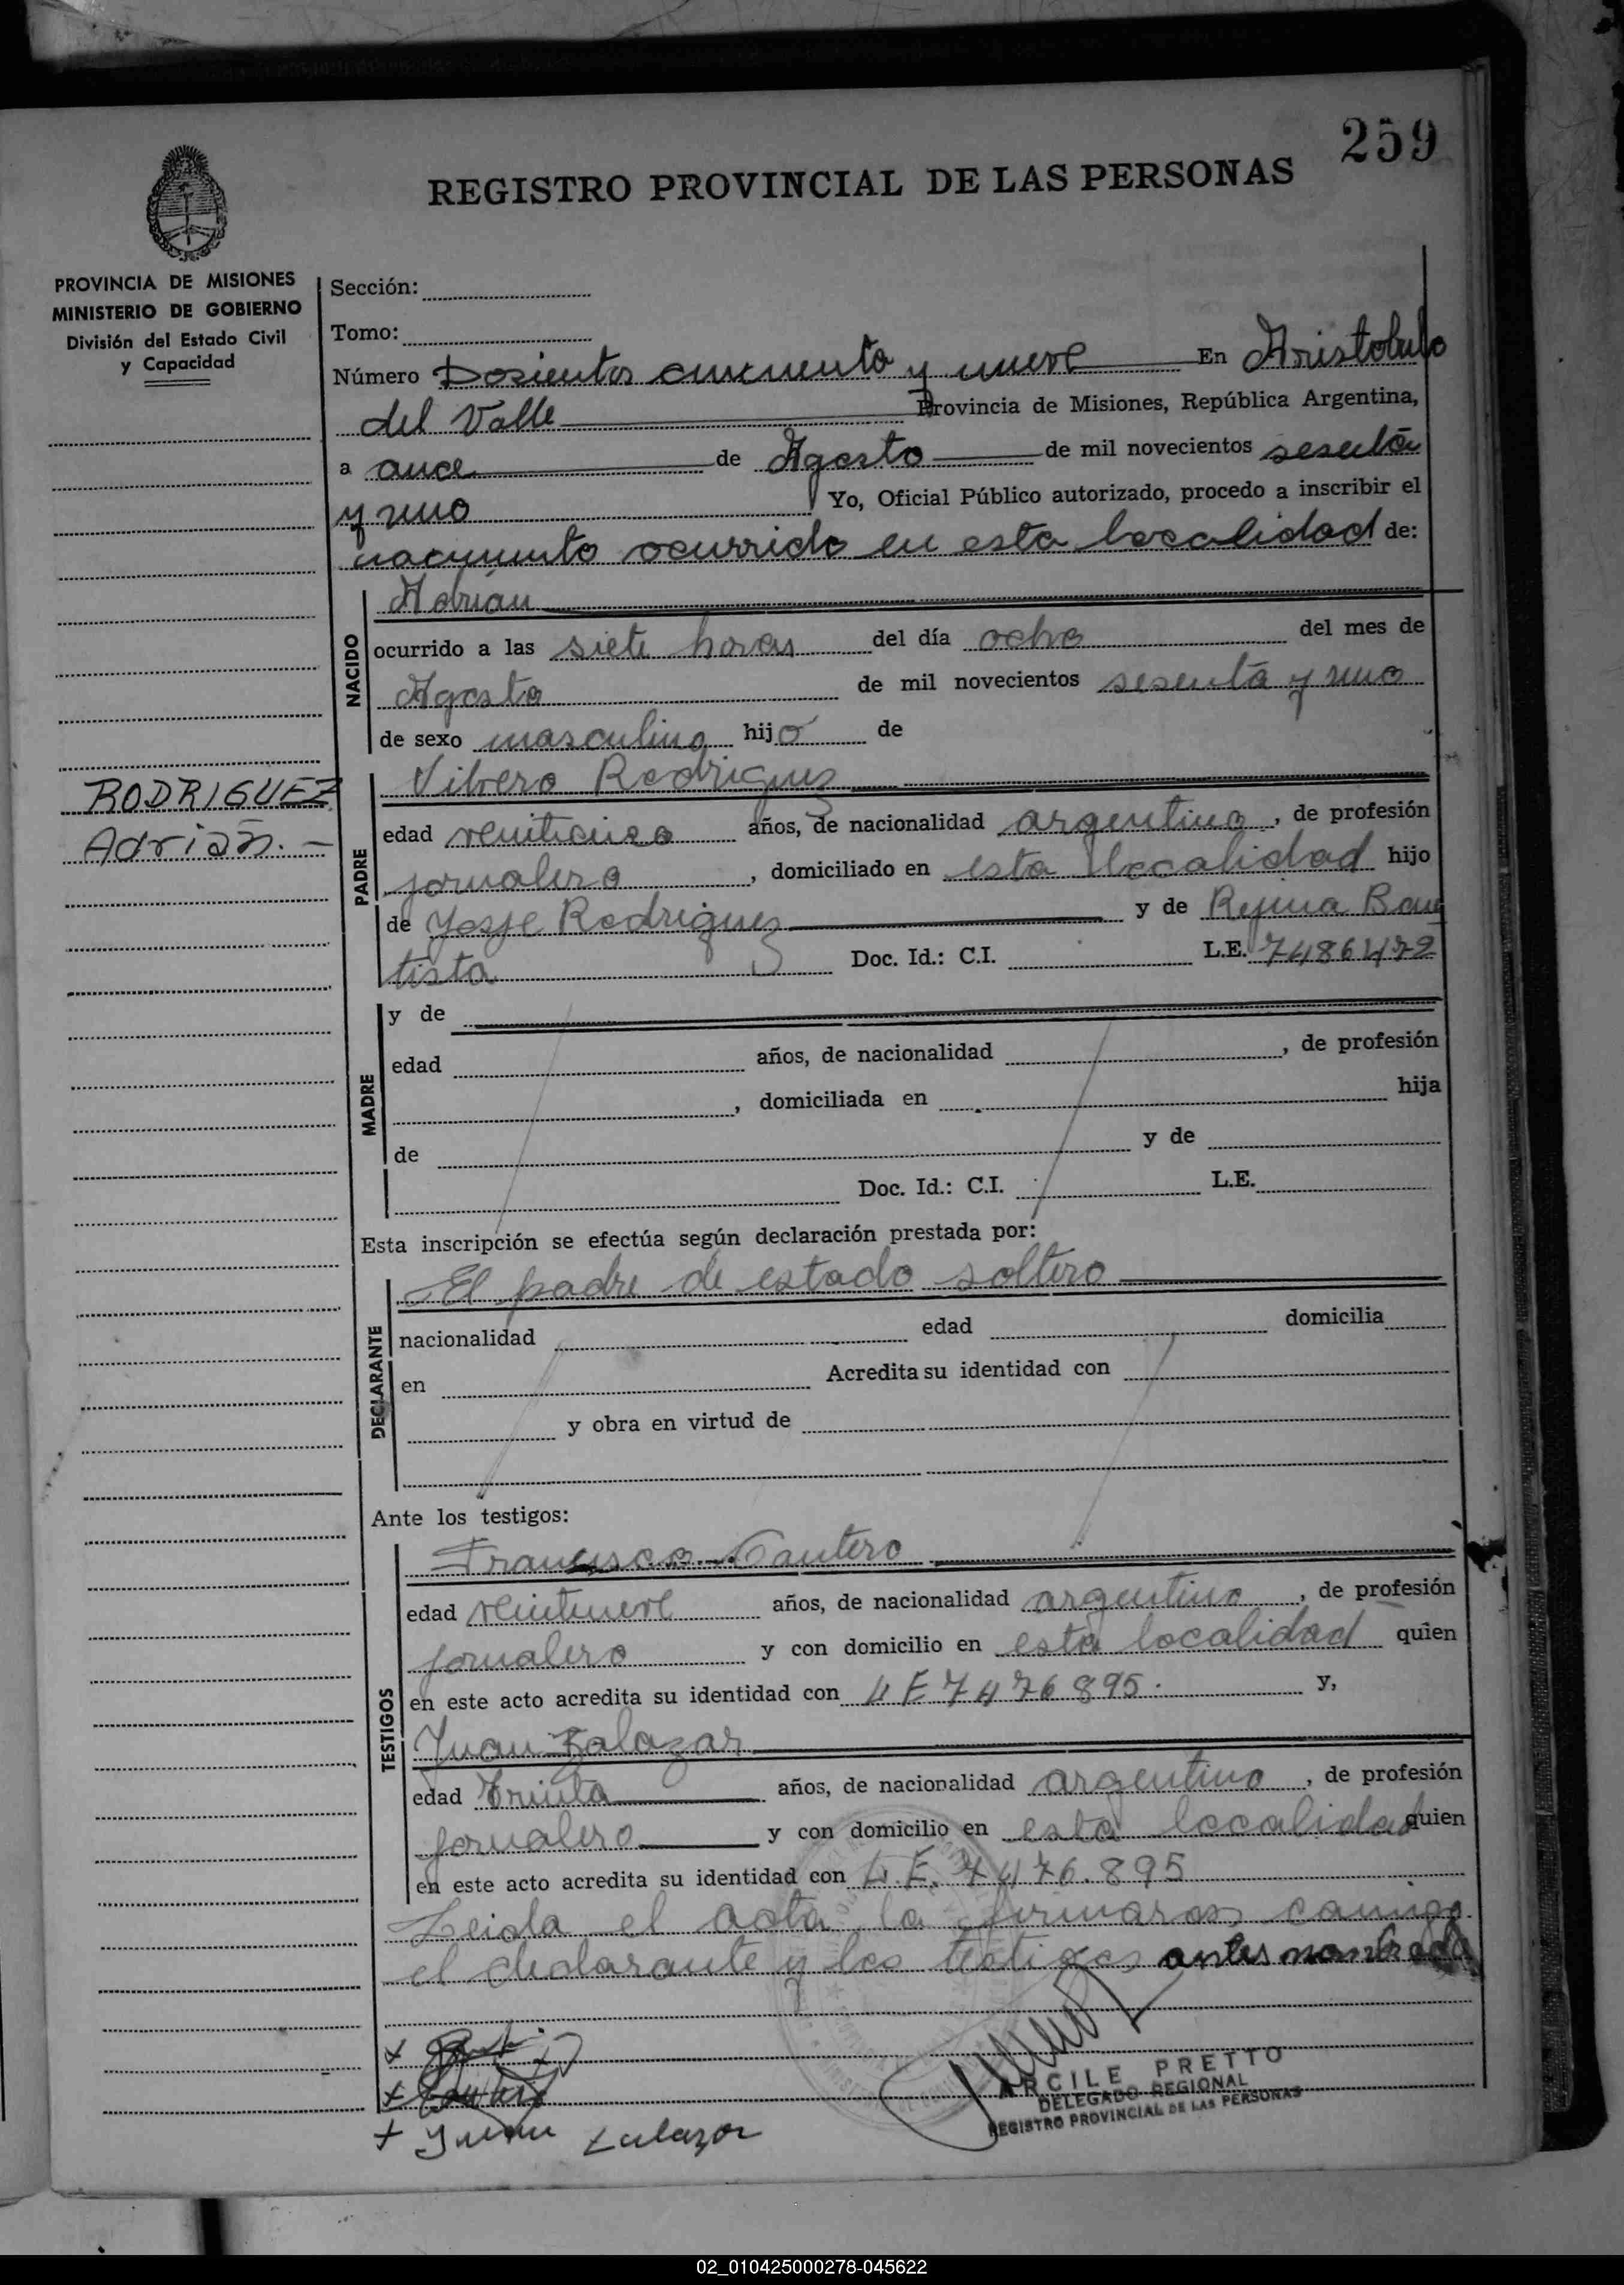 259
REGISTRO PROVINCIAL DE LAS PERSONAS
PROVINCIA DE MISIONES
MINISTERIO DE GOBIERNO
División del Estado Civil
y Capacidad
Sección:
Tomo:
Número Dosientos cincuenta y nueve En Aristobulo
del Valle Provincia de Misiones, República Argentina,
a once de Agosto de mil novecientos sesenta
y uno Yo, Oficial Público autorizado, procedo a inscribir el
nacimiento ocurrido en esta localidad de:
NACIDO
Adrián
ocurrido a las siete horas del día ocho del mes de
Agosto de mil novecientos sesenta y uno
de sexo masculino hijo de
RODRIGUEZ
Adrián.-
PADRE
Rodriguez
edad veinticinco años, de nacionalidad argentino, de profesión
jornalero, domiciliado en esta localidad hijo
de Rodriguez y de Rejina Bau
tista Doc. Id.: C.I. L.E. 7486472
MADRE
y de
edad años, de nacionalidad , de profesión
, domiciliada en hija
de y de
Doc. Id.: C.I. L.E.
Esta inscripción se efectúa según declaración prestada por:
DECLARANTE
El padre de estado soltero
nacionalidad edad domicilia
en Acredita su identidad con
y obra en virtud de
Ante los testigos:
TESTIGOS
Francisco Cantero
edad veintinueve años, de nacionalidad argentino, de profesión
jornalero y con domicilio en esta localidad quien
en este acto acredita su identidad con L E 7476895. y,
Juan Zalazar
edad Treinta años, de nacionalidad argentino, de profesión
jornalero y con domicilio en esta localidad quien
en este acto acredita su identidad con L.E. 7476.895
Leida el acta la firmaron conmigo
el declarante y los testigos antes nombrados
+
+ Cantero
+ Juan Zalazar
ARCILE PRETTO
DELEGADO REGIONAL
REGISTRO PROVINCIAL DE LAS PERSONAS
02_010425000278-045622